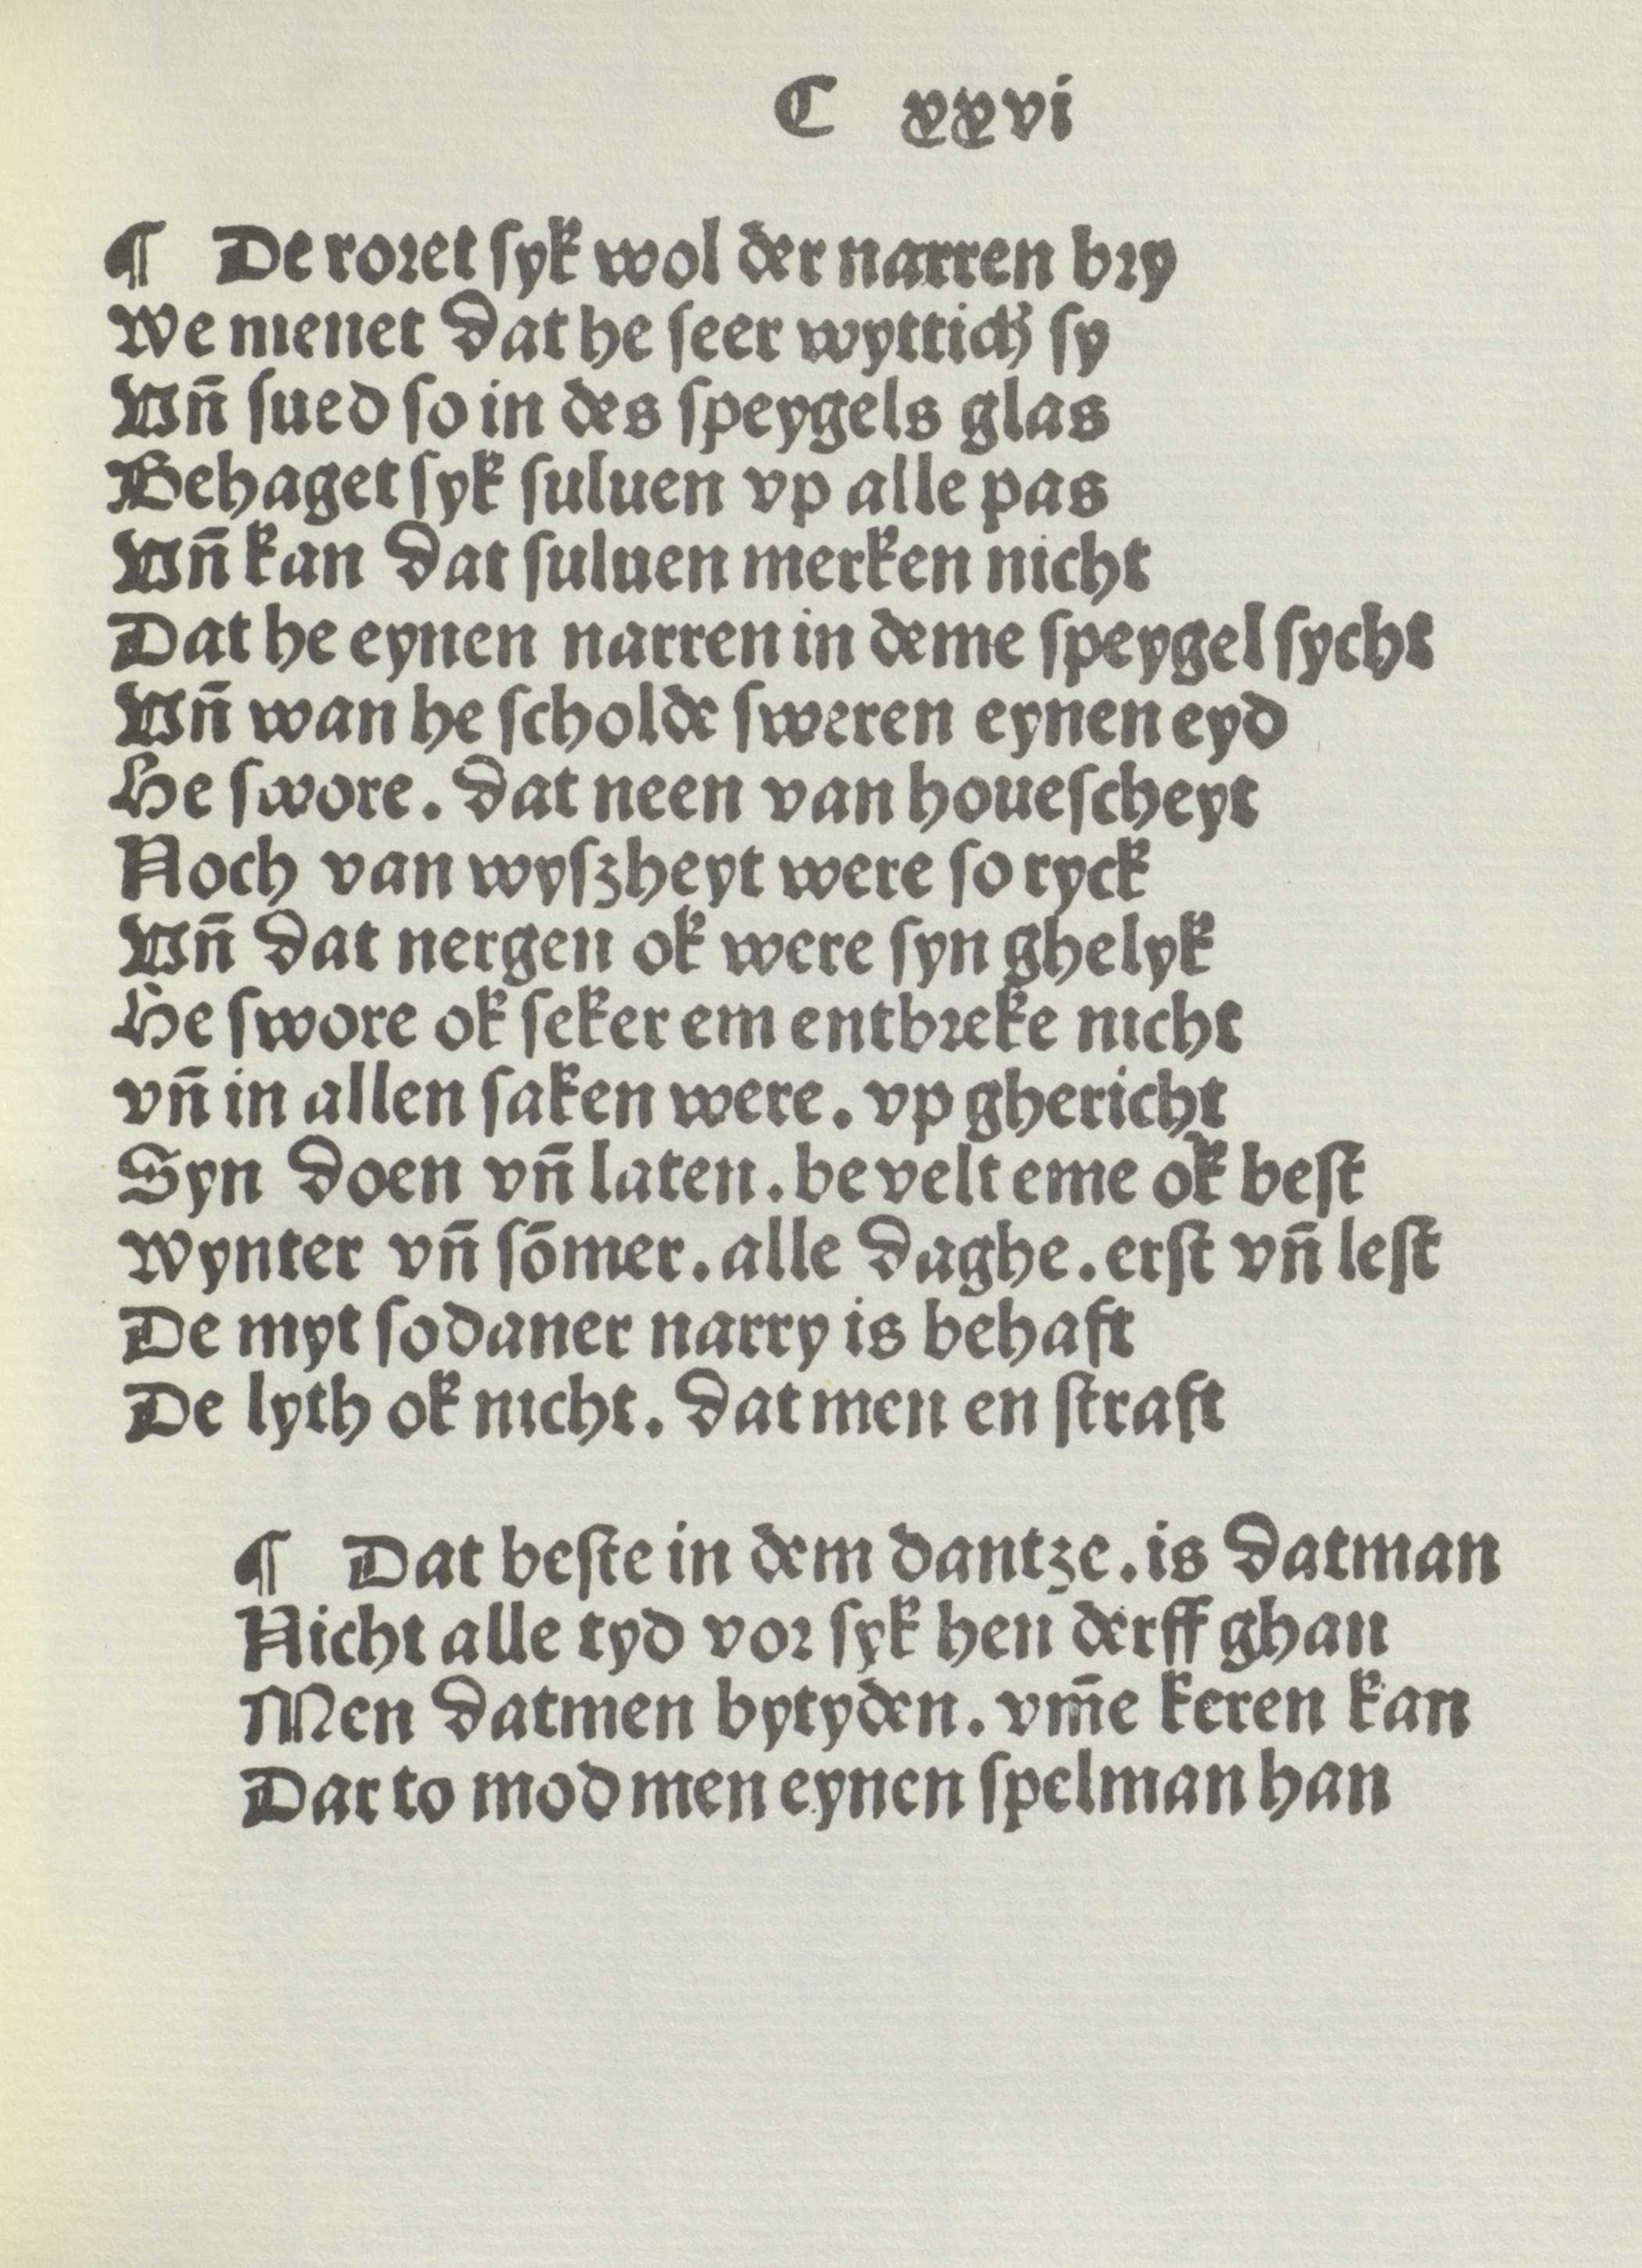 C xxvi
¶ De roꝛet ſyk wol der narren bꝛy
We menet dat he ſeer wyttich ſy
Vn̄ ſued ſo in des ſpeygels glas
Behaget ſyk ſuluen vp alle pas
Vn̄ kan dat ſuluen merken nicht
Dat he eynen narren in deme ſpeygel ſycht
Vn̄ wan he ſcholde ſweren eynen eyd
He ſwore. dat neen van houeſcheyt
Noch van wyſzheyt were ſo ryck
Vn̄ dat nergen ok were ſyn ghelyk
He ſwore ok ſeker em entbꝛeke nicht
vn̄ in allen ſaken were. vp ghericht
Syn doen vn̄ laten. be velt eme ok beſt
Wynter vn̄ ſōmer. alle daghe. erſt vn̄ leſt
De myt ſodaner narry is behaft
De lyth ok nicht. dat men en ſtraft
¶ Dat beſte in dem dantze. is datman
Nicht alle tyd voꝛ ſyk hen derff ghan
Men datmen bytyden. vm̄e keren kan
Dar to mod men eynen ſpelman han